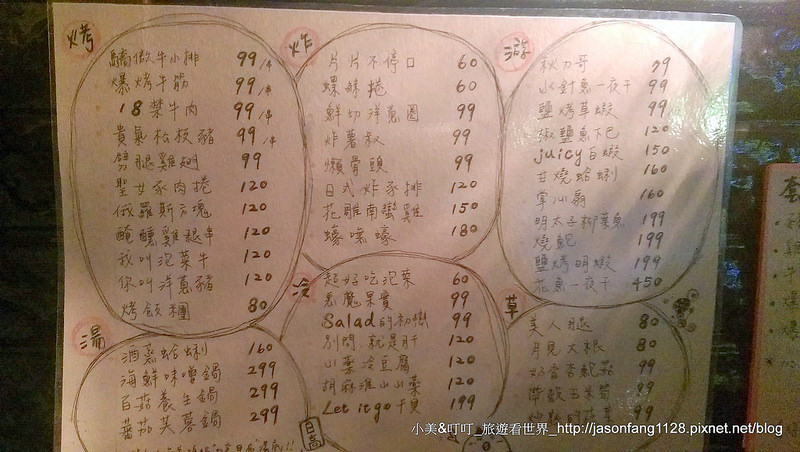 烤
驕傲牛小排 99/4
爆烤牛筋 99/4
18禁牛肉 99/4
貴氣松板豬 99/4
劈腿雞翅 99
聖女豕肉捲 120
俄羅斯方塊 120
醃醺雞腿串 120
我叫泡菜牛 120
你叫洋蔥豬 120
烤飯糰 80
炸
片片不停口 60
螺絲捲 60
鮮切洋蔥圈 99
炸薯叔 99
懶骨頭 99
日式炸豕排 120
花雕南蠻雞 150
蠔嘿蠔 180
游
秋刀哥 79
水針魚一夜干 99
鹽烤草蝦 99
椒鹽魚下巴 120
juicy白蝦 150
甘燒蛤蜊 160
掌心扇 160
明太子柳葉魚 199
燒魠 199
鹽烤明蝦 199
花魚一夜干 450
湯
酒蒸蛤蜊 160
海鮮味噌鍋 299
百菇養生鍋 299
蕃茄芙蓉鍋 299
冷
超好吃泡菜 60
惡魔果實 99
Salad的初戀 99
別問 就是肝 120
小葉冷豆腐 120
胡麻淮山山藥 120
Let it go干貝 199
草
美人腿 80
月見大根 80
奶香杏鮑菇 99
帶殼玉米筍 99
99
日高
套
小美&叮叮_旅遊看世界_http://jasonfang1128.pixnet.net/blog